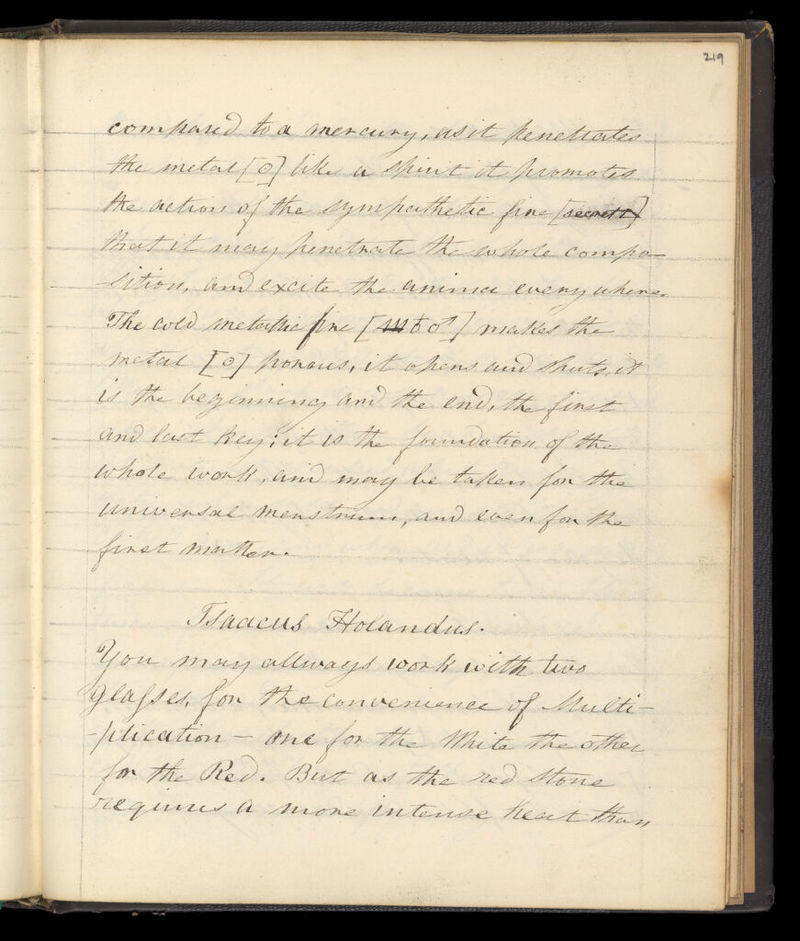 219
compared to a mercury, as it penetrates
the metal [☉] like a spirit it promotes
the action of the sympathetic fire [secret]
that it may penetrate the whole compo-
-sition, and excite the anima every where.
The cold metallic fire [♁♂] makes the
metal [☉] porous, it opens and shuts, it
is the beginning and the end, the first
and last key; it is the foundation of the
whole work, and may be taken for the
universal menstruum, and even for the
first matter.
Isaacus Holandus.
You may allways work with two
glasses, for the convenience of Multi-
-plication — one for the White the other
for the Red. But as the red Stone
requires a more intense heat than